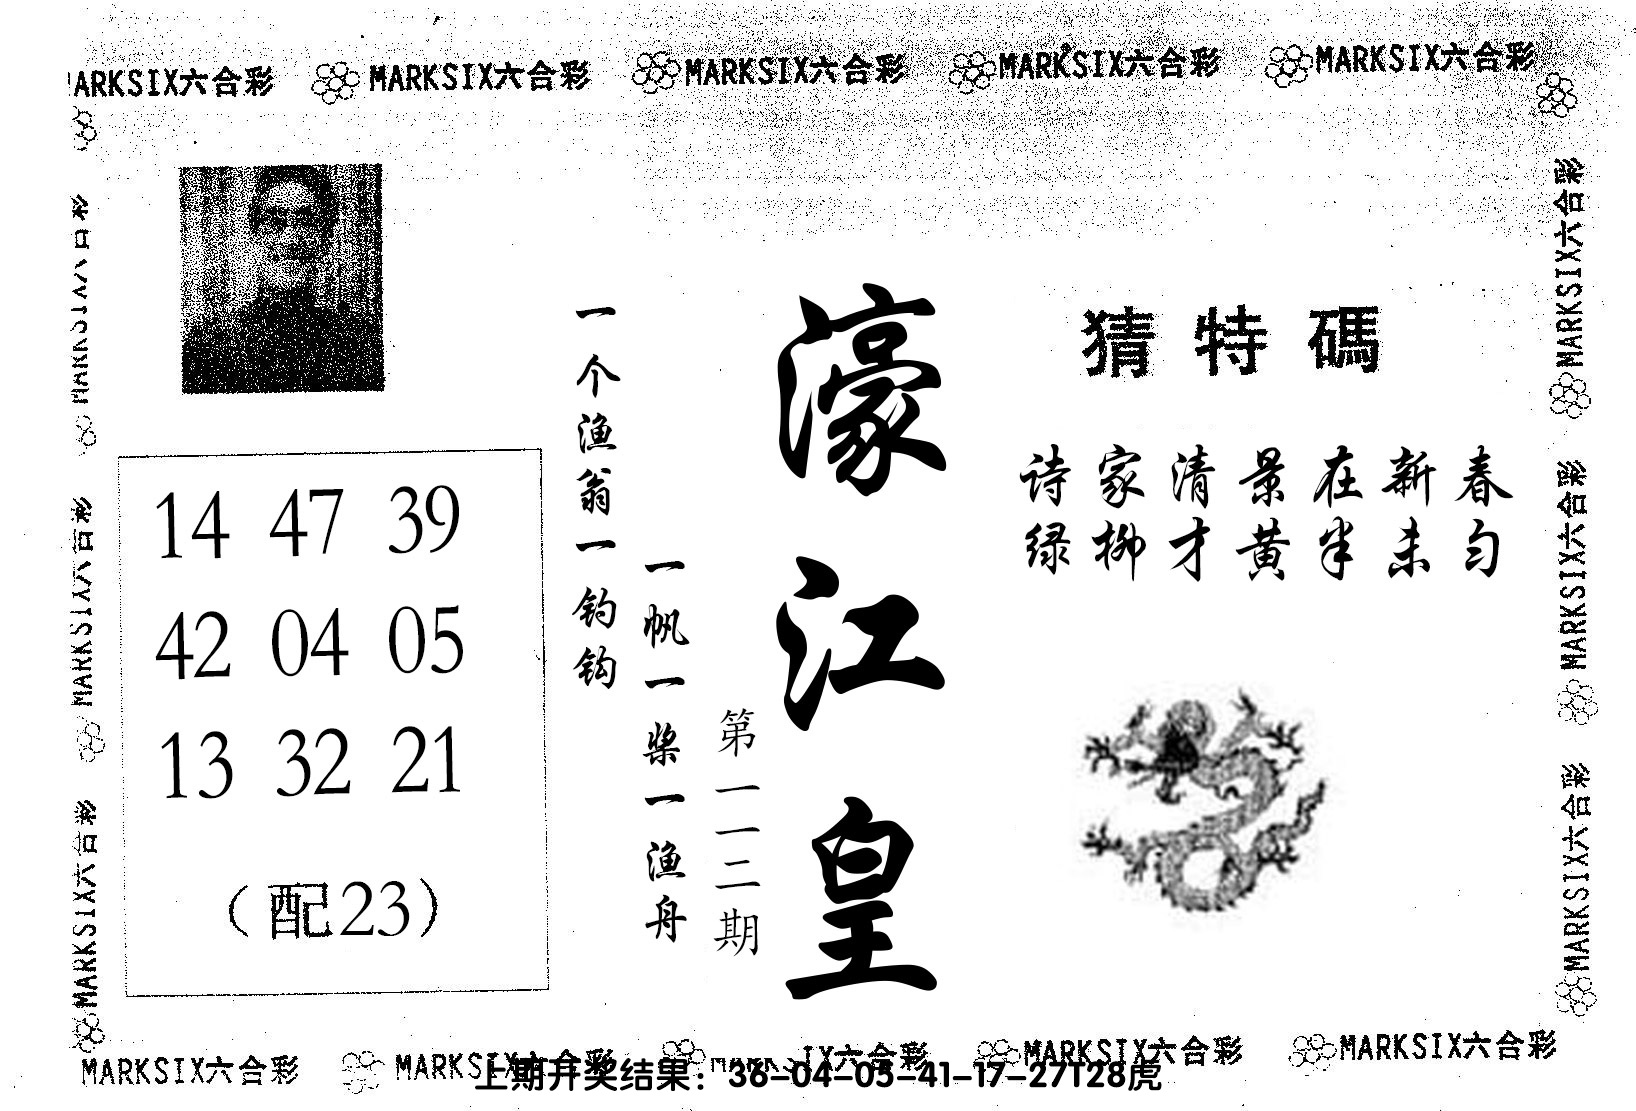 MARKSIX六合彩 MARKSIX六合彩 MARKSIX六合彩 MARKSIX六合彩 MARKSIX六合彩
猜特碼
诗家清景在新春
绿柳才黄半未匀
濠江皇
第一一二期
一帆一桨一渔舟
一个渔翁一钓钩
14 47 39
42 04 05
13 32 21
（配23）
MARKSIX六合彩
MARKSIX六合彩
MARKSIX六合彩
MARKSIX六合彩
MARKSIX六合彩
MARKSIX六合彩
MARKSIX六合彩 MARKSIX六合彩 IX六合彩 MARKSIX六合彩 MARKSIX六合彩
上期开奖结果：36-04-05-41-17-27T28虎